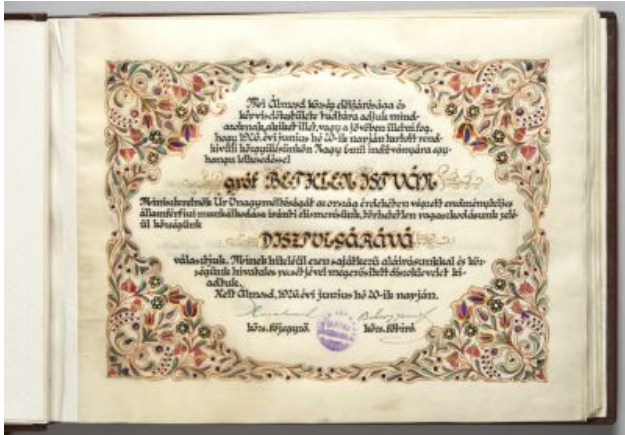 Mi Álmosd község elöljárósága és
képviselőtestülete tudtára adjuk mind-
azoknak, akiket illet, vagy a jövőben illetni fog,
hogy 1926. évi junius hó 20-ik napján tartott rend-
kívüli közgyülésünkön Nagy Emil indítványára egy-
hangu lelkesedéssel
gróf BETHLEN ISTVÁN
Miniszterelnök Ur Őnagyméltóságát az ország érdekében végzett eredményteljes
államférfiui munkálkodása iránti elismerésünk, törhetetlen ragaszkodásunk jelé-
ül községünk
DISZPOLGÁRÁVÁ
választjuk. Minek hiteléül ezen sajátkezü aláirásunkkal és köz-
ségünk hivatalos pecsétjével megerősitett díszoklevelet ki-
adtuk.
Kelt Álmosd, 1926. évi junius hó 20-ik napján.
közs. főjegyző. közs. főbiró.